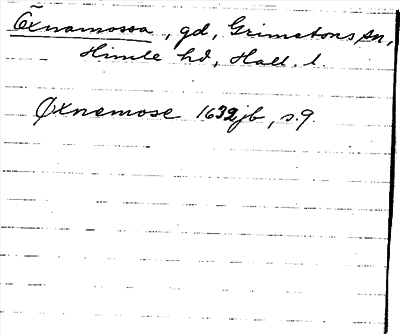 Öxnamossa, gd, Grimetons sn,
Himle hd, Hall. l.
Øxnemose 1632 jb, s. 9.